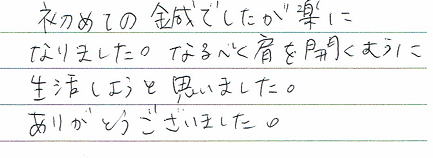 初めての鍼でしたが楽に
なりました。なるべく肩を開くように
生活しようと思いました。
ありがとうございました。